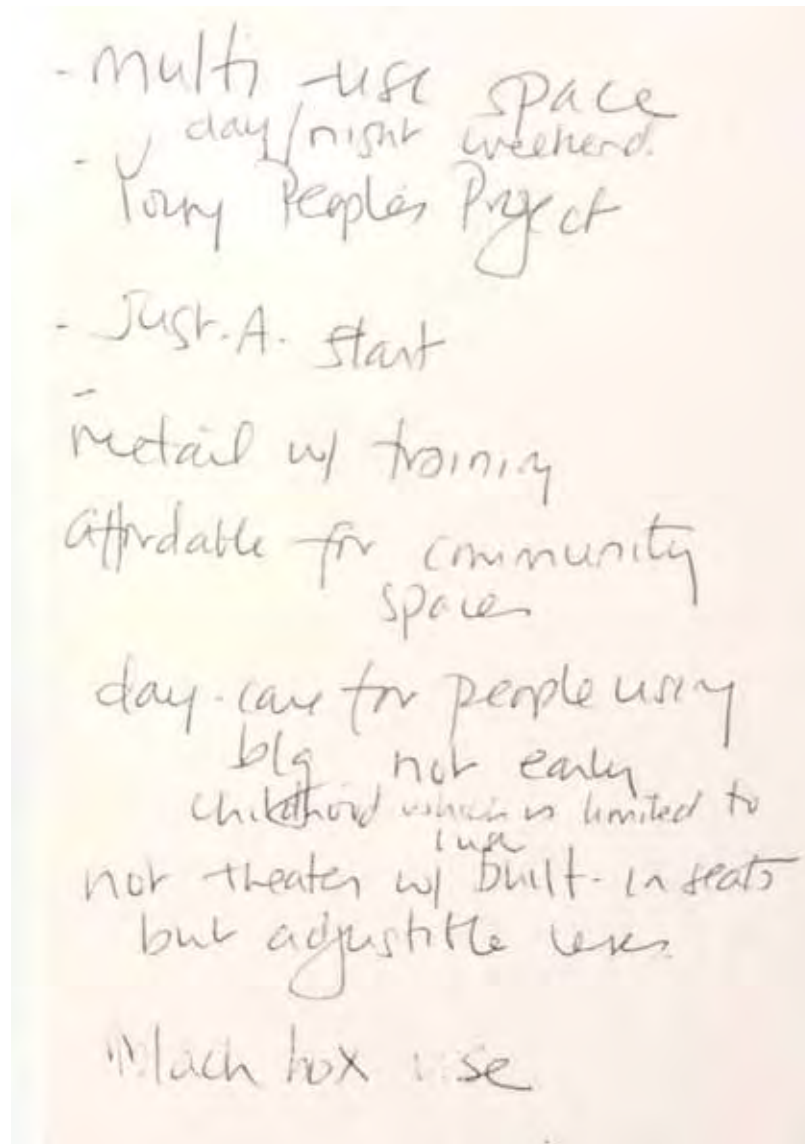 - Multi-use space
day/night weekend.
- Young Peoples Project
- Just.A. Start
-
retail w/ training
affordable for community
spaces
day-care for people using
blg not early
childhood which is limited to
1 use
not theater w/ built-in seats
but adjustible uses.
black box use